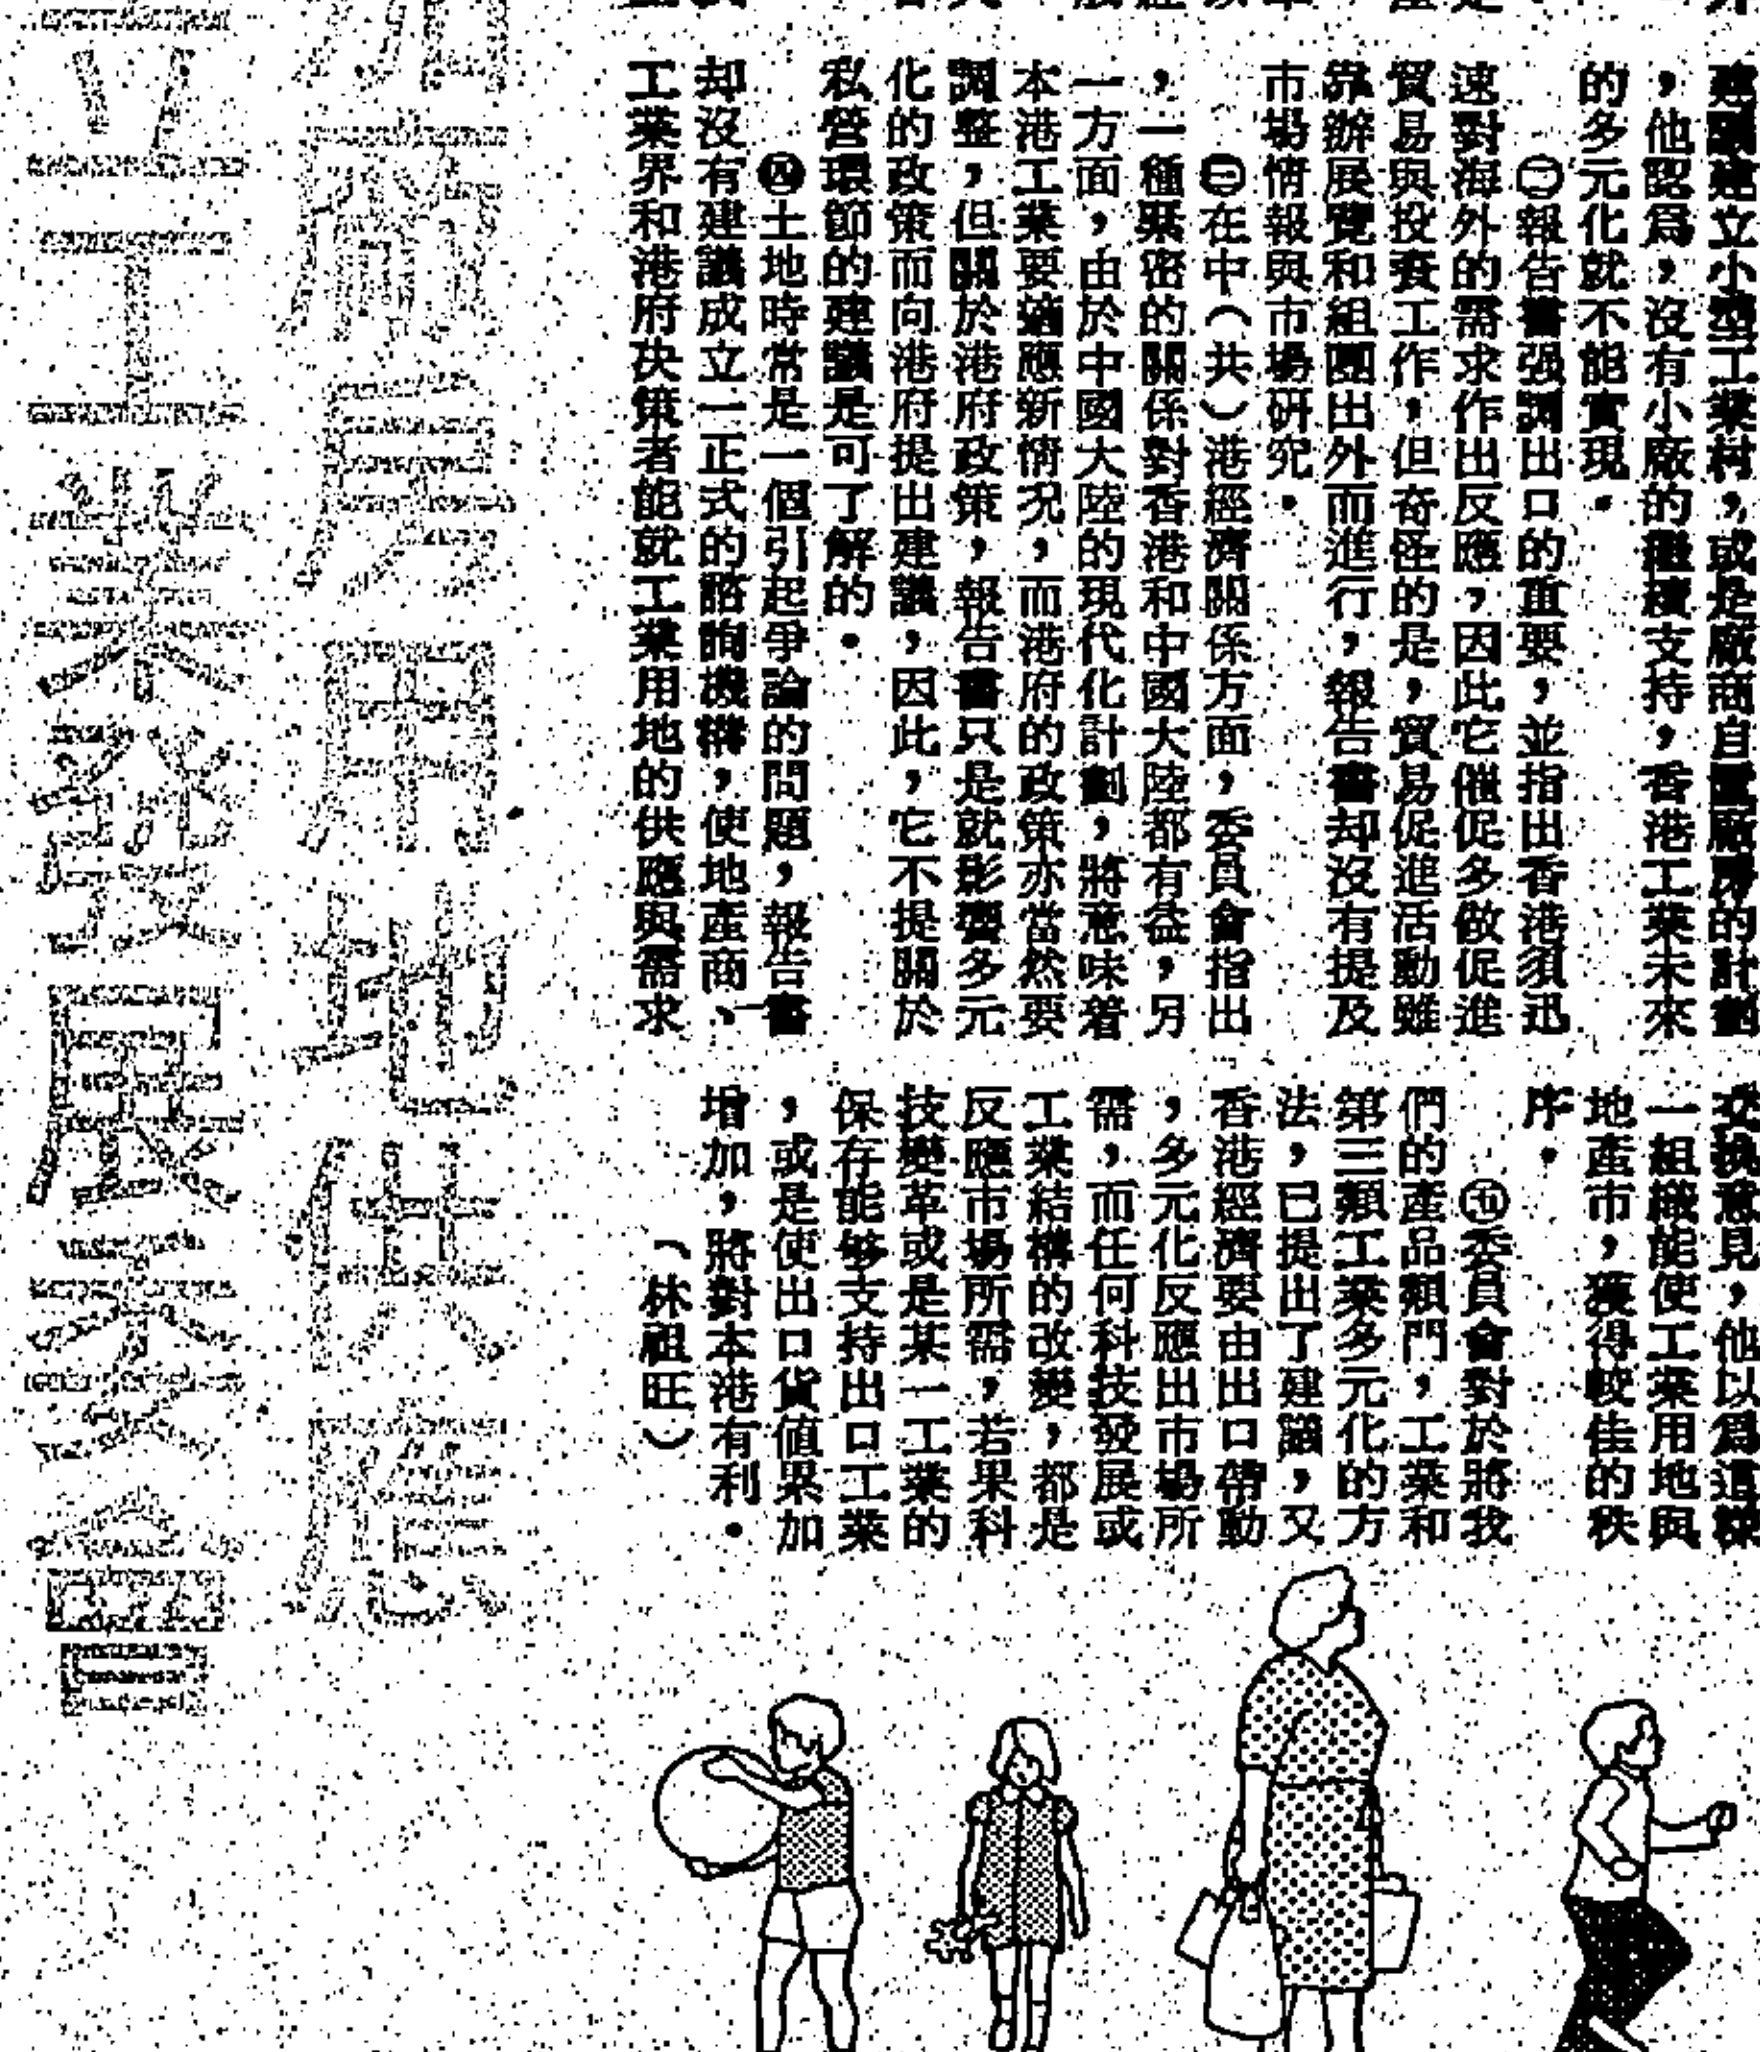 建議建立小型工業村，或是廠商自置廠房的計劃
，他認爲，沒有小廠的繼續支持，香港工業未來
的多元化就不能實現．
㊁報告書强調出口的重要，並指出香港須迅
速對海外的需求作出反應，因此它催促多做促進
貿易與投資工作，但奇怪的是，貿易促進活動雖
靠辦展覽和組團出外而進行，報告書却沒有提及
市場情報與市場研究．
㊂在中（共）港經濟關係方面，委員會指出
，一種緊密的關係對香港和中國大陸都有益，另
一方面，由於中國大陸的現代化計劃，將意味着
本港工業要適應新情况，而港府的政策亦當然要
調整，但關於港府政策，報告書只是就影響多元
化的政策而向港府提出建議，因此，它不提關於
私營環節的建議是可了解的．
㊃土地時常是一個引起爭論的問題，報告書
却沒有建議成立一正式的諮詢機構，使地產商、
工業界和港府决策者能就工業用地的供應與需求
交換意見，他以爲這樣
一組織能使工業用地與
地產市，獲得較佳的秩
序．
㊄委員會對於將我
們的產品類門，工業和
第三類工業多元化的方
法，已提出了建議，又
香港經濟要由出口帶動
，多元化反應出市場所
需，而任何科技發展或
工業結構的改變，都是
反應市場所需，若果科
技變革或是某一工業的
保存能够支持出口工業
，或是使出口貨値累加
增加，將對本港有利．
（林祖旺）
加廠房用地供應
立工業發展委會